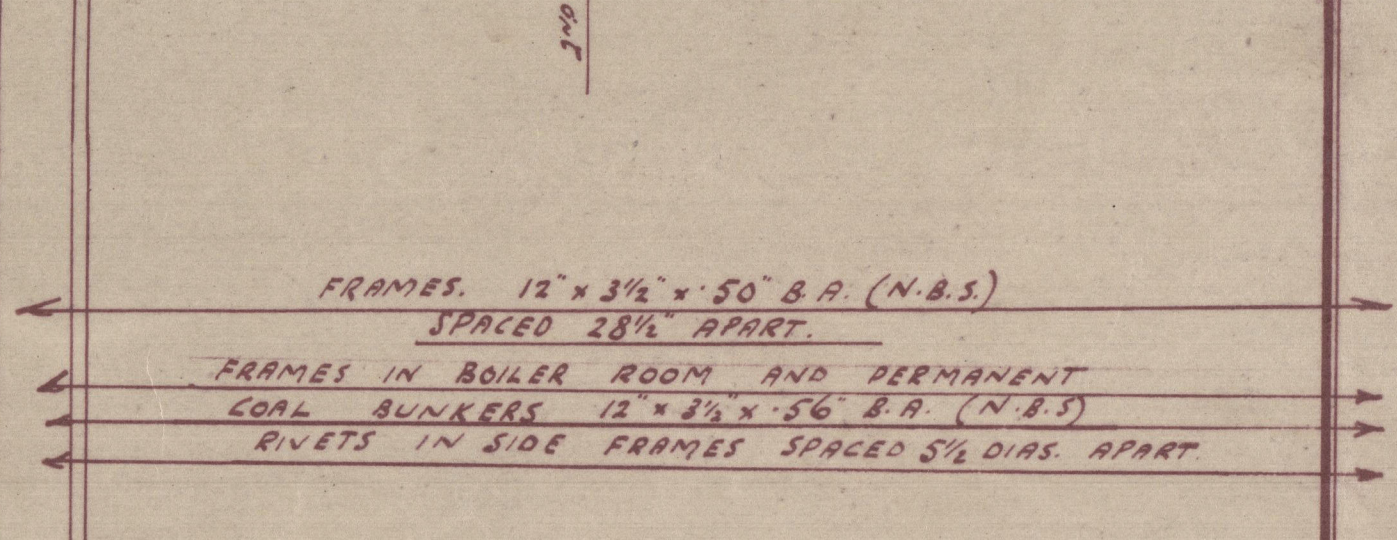 FRAMES. 12" x 3½" x ·50" B.A. (N.B.S.)
SPACED 28½" APART.
FRAMES IN BOILER ROOM AND PERMANENT
COAL BUNKERS 12" x 3½" x ·56" B.A. (N.B.S)
RIVETS IN SIDE FRAMES SPACED 5½ DIAS. APART.